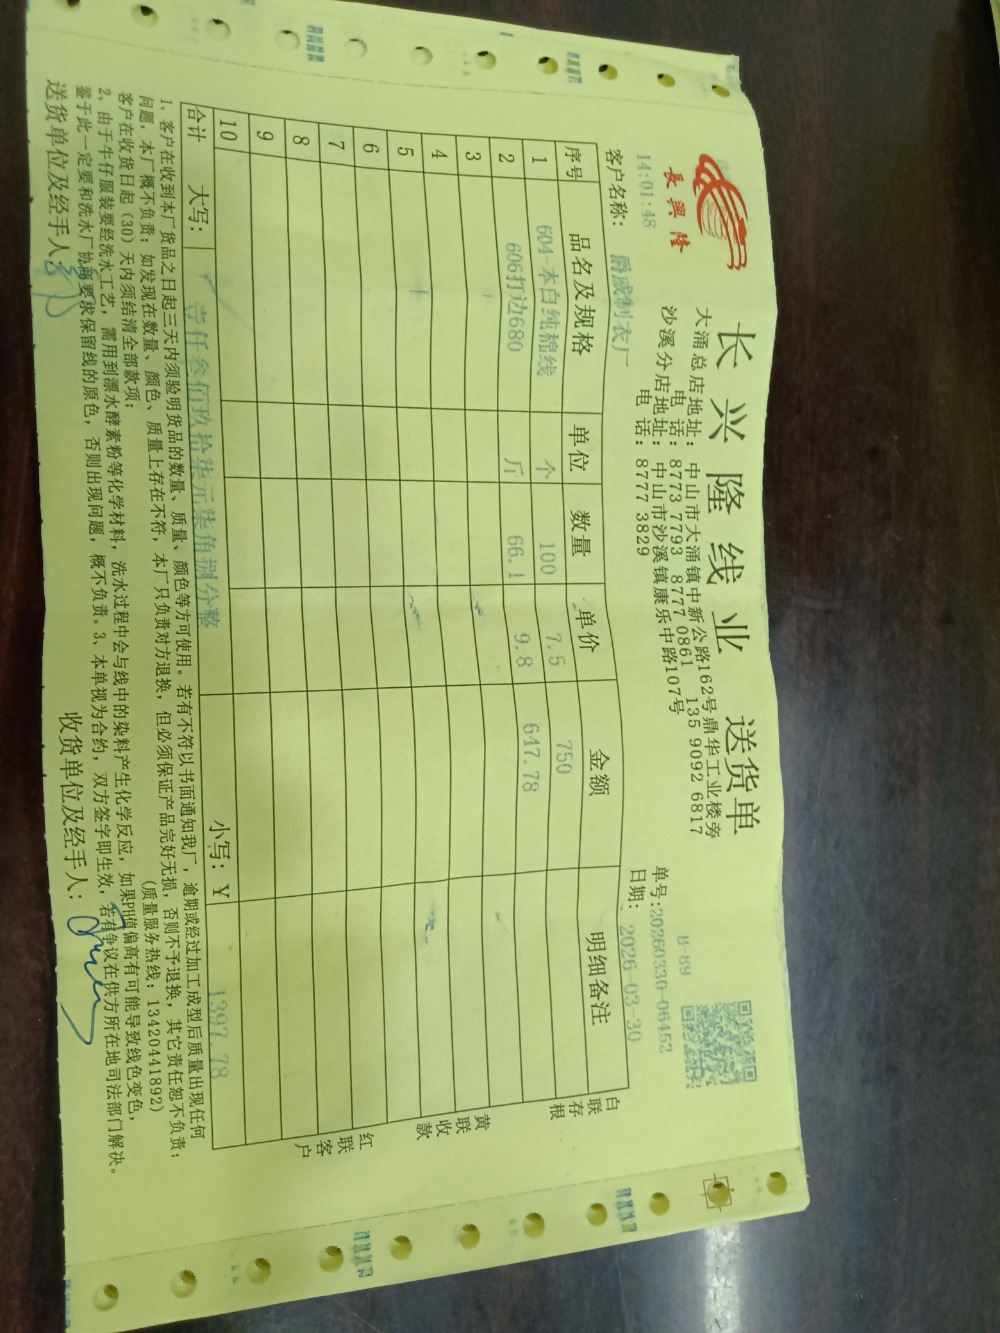 長興隆
长兴隆线业 送货单
大涌总店地址：中山市大涌镇中新公路162号鼎华工业楼旁
电 话：8773 7793 8777 0861 135 9092 6817
沙溪分店地址：中山市沙溪镇康乐中路107号
电 话：8777 3829
B-89
14:01:48
单号:20260330-06452
客户名称：爵威制衣厂
日期：2026-03-30
序号 品名及规格 单位 数量 单价 金额 明细备注
1 604-本白纯棉线 个 100 7.5 750
2 606打边680 斤 66.1 9.8 647.78
3
4
5
6
7
8
9
10
合计 大写：壹仟叁佰玖拾柒元柒角捌分整 小写：Y 1397.78
白联存根
黄联收款
红联客户
1、客户在收到本厂货品之日起三天内须验明货品的数量、质量、颜色等方可使用。若有不符以书面通知我厂，逾期或经过加工成型后质量出现任何
问题，本厂概不负责；如发现在数量、颜色、质量上存在不符，本厂只负责对方退换，但必须保证产品完好无损，否则不予退换，其它责任恕不负责；
客户在收货日起（30）天内须结清全部款项； （质量服务热线：13420441892）
2、由于牛仔服装要经洗水工艺，需用到漂水酵素粉等化学材料，洗水过程中会与线中的染料产生化学反应，如果PH值偏高有可能导致线色变色，
鉴于此一定要和洗水厂协商要求保留线的原色，否则出现问题，概不负责。3、本单视为合约，双方签字即生效，若有争议在供方所在地司法部门解决。
送货单位及经手人： 收货单位及经手人：